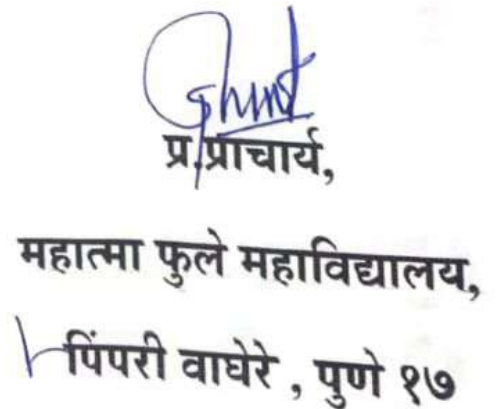 प्र.प्राचार्य,
महात्मा फुले महाविद्यालय,
पिंपरी वाघेरे , पुणे १७